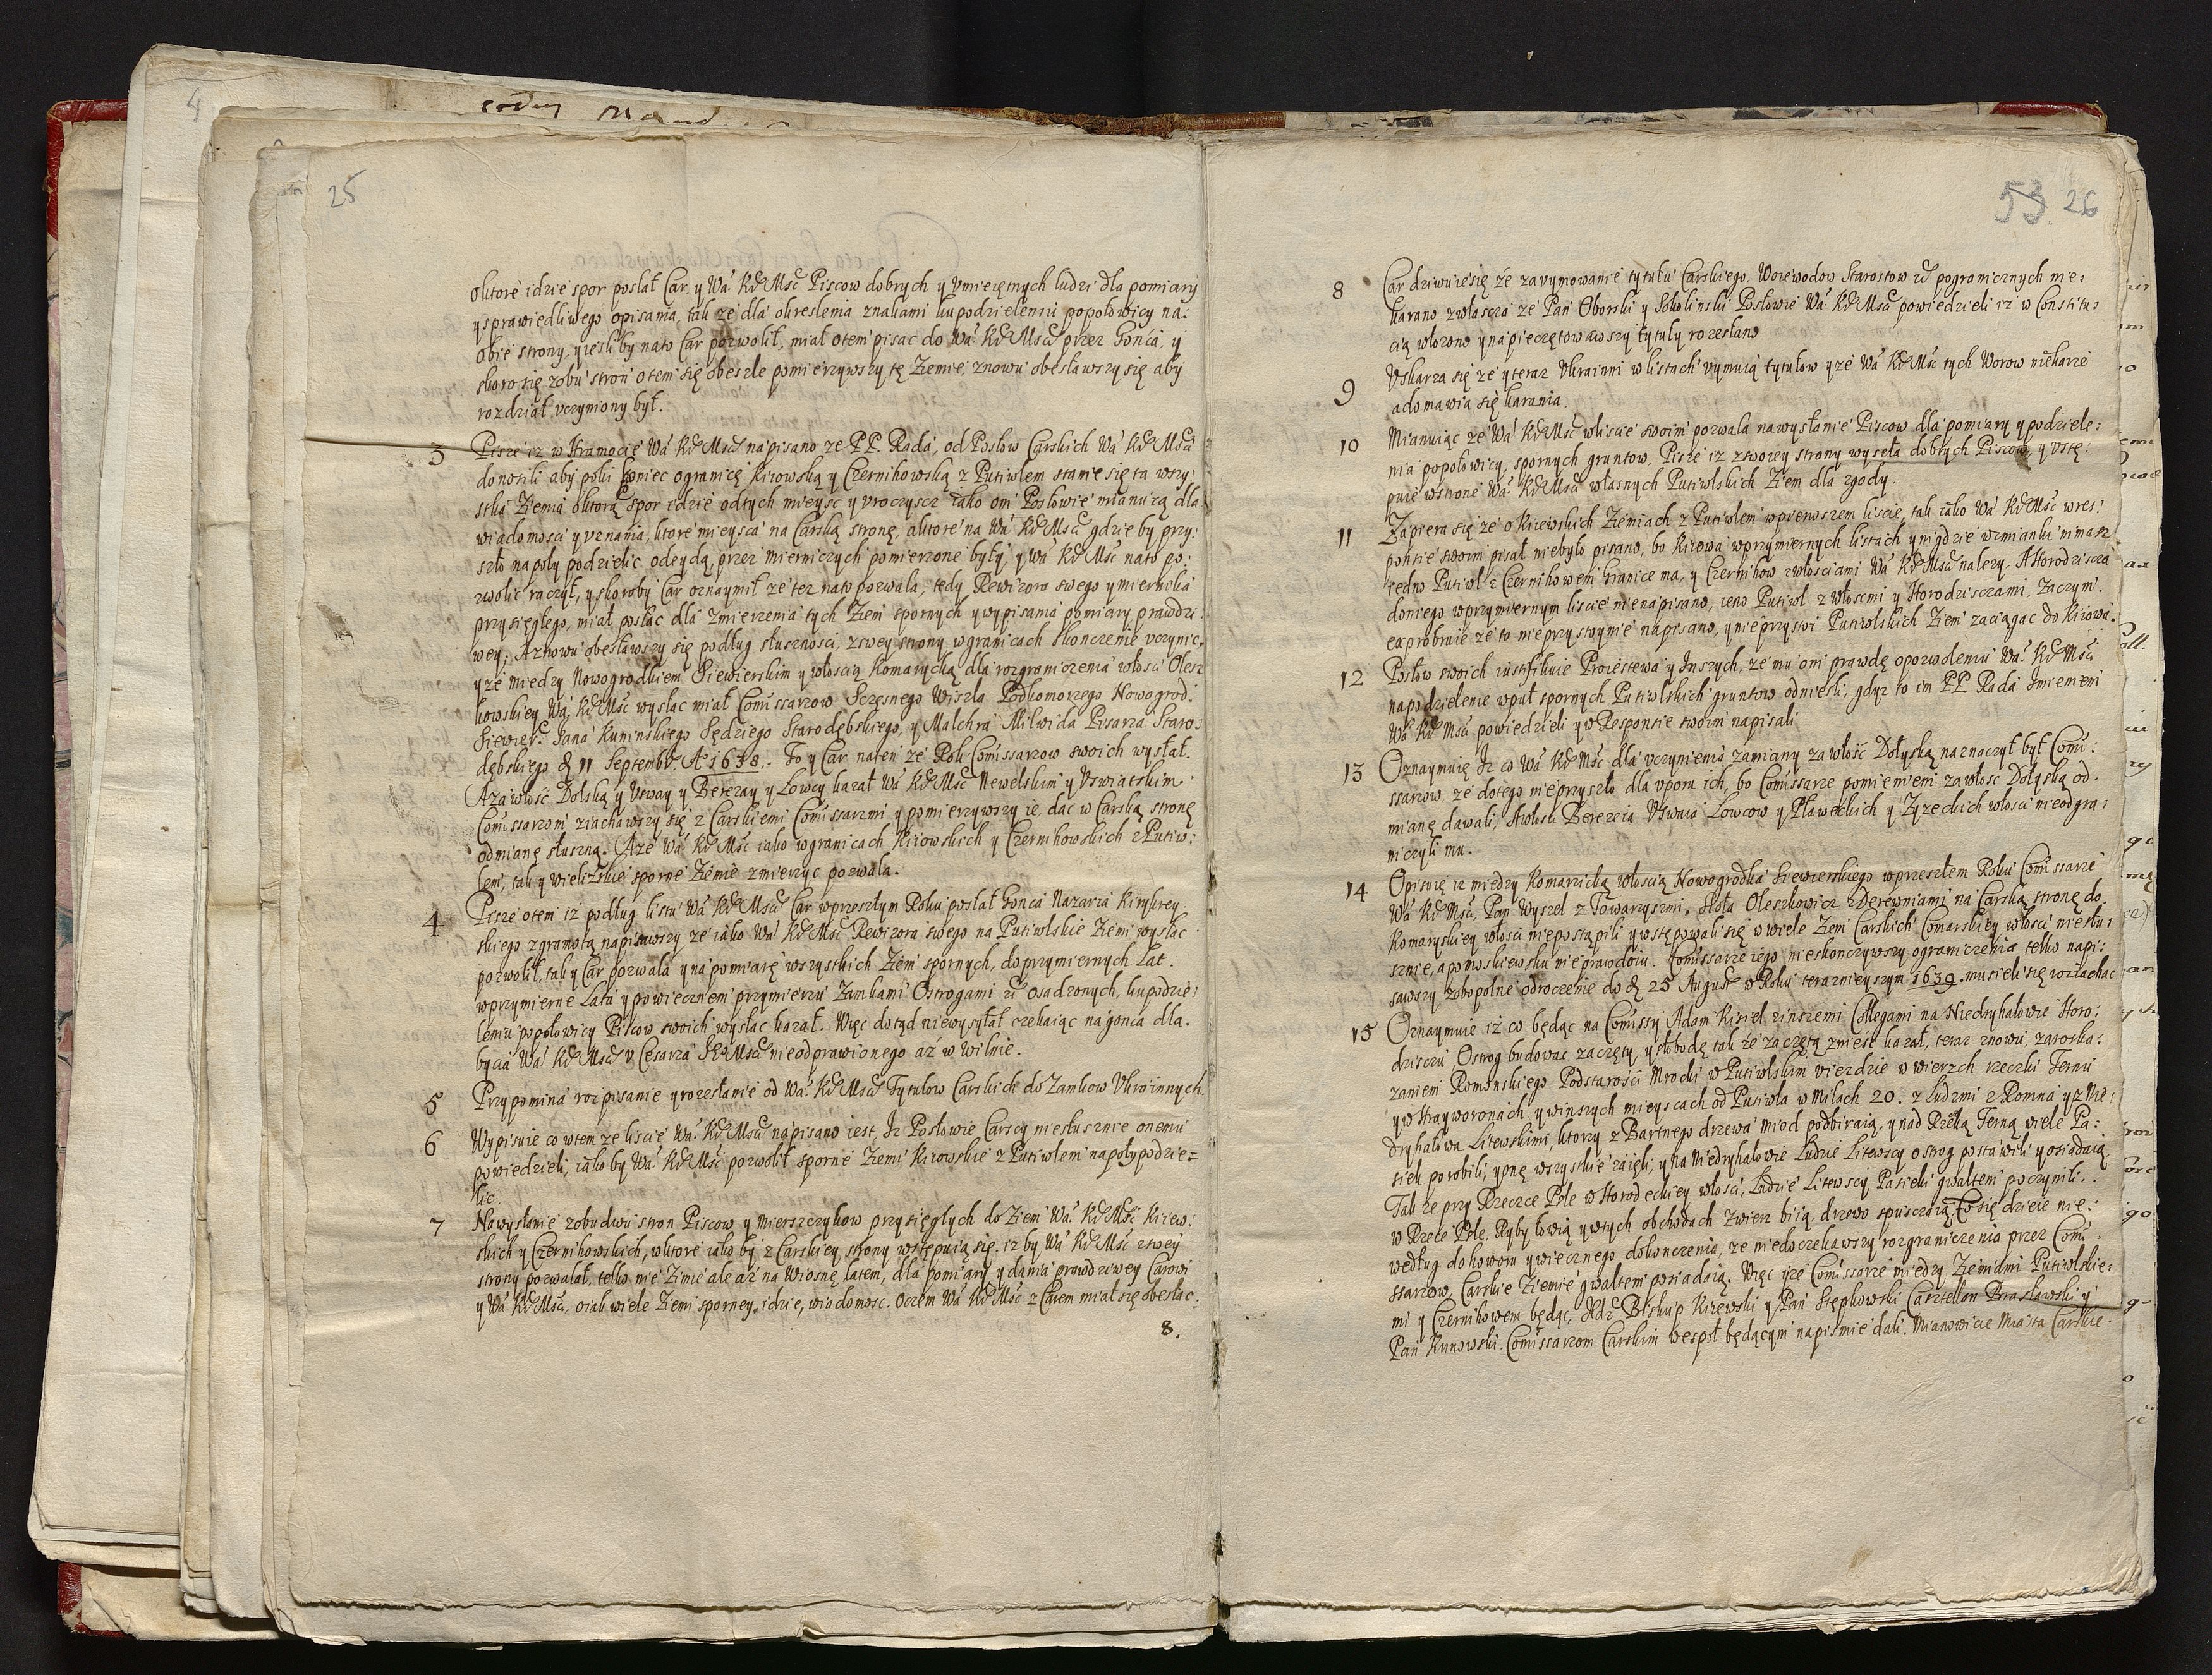 25
oktore idzie spor posłał Car, y Wá. KrMść Piscow dobrych y vmieiętnych ludzi dla pomiary
y sprawiedliwego opisania, tak że dla okreslenia znakami ku podzieleniu popołowicy na
obie strony, y iesliby na to Car pozwolił, miał o tem pisac do Wá. KrMści przez Gońca, y
skoro się z obu stron o tem się obeszle pomierzywszy tę Ziemię znowu obesławszy się aby
rozdział vczyniony był.
3 Pisze iz w Hramocie Wá KrMści napisano ze P.P. Rada, od Posłow Carskich Wá KrMści
donosili aby poki koniec o granicę Kiiowską y Czernihowską z Putiwlem stanie się ta wszy-
stka Ziemia o ktorą spor idzie od tych mieysc y vroczyscz iako oni Posłowie mianuią dla
wiadomosci y vznania, ktore mieysca na Carską stronę, a ktore na Wá KrMści gdzie by przy-
szło na poły podzielic odeydą, przez mierniczych pomierzone były, y Wá KrMść na to po-
zwolic raczył, y skoroby Car oznaymił ze tez na to pozwala, tedy Rewizora swego y miernika
przysięgłego, miał posłac dla zmierzenia tych Ziem spornych y wypisania pomiary prawdzi-
wey; A znowu obesławszy się podług słusznosci, z swey strony w granicach skonczenie vczynic.
y ze miedzy Nowogrodkiem Siewierskim y włoscią Komarycką dla rozgraniczenia włosci Olesz-
kowskiey Wá: KrMść wysłac miał Comissarzow Sczęsnego Wiszla Podkomorzego Nowogrod:
Siewier: Jana Kuninskiego Sędziego Starodębskiego, y Malchra Milwida Pisarza Staro-
dębskiego d 11 Septembr. A° 1638. To y Car na ten ze Rok Comissarzow swoich wysłał.
A za włość Dolską y Vsway y Berezay y Łowcy kazał Wá KrMść Newelskim y Vswiatskim
Comissarzom ziachawszy się z Carskiemi Comissarzmi y pomierzywszy ie dac w Carską stronę
odmianę słuszną. A ze Wá KrMść iako w granicach Kiiowskich y Czernihowskich z Putiw-
lem, tak y Wieliżskie sporne Ziemie zmierzyc pozwala.
4 Pisze o tem iż podług listu Wá KrMści Car w przeszłym Roku posłał Gonca Nazaria
skiego z gramotą napisawszy ze iako Wá KrMść Rewizora swego na Putiwlskie Ziemi wysłac
pozwolił, tak y Car pozwala y na pomiarę wszystkich Ziem spornych, do przymiernych Lat.
w przymierne Lata y po wiecznem przymierzu Zamkami Ostrogami etc osadzonych, ku podzie-
leniu popołowicy Piscow swoich wysłac kazał. Więc dotąd nie wysyłał czekaiąc na gonca dla
bycia Wá: KrMści v Cesarza JeMści nieodprawionego aż w Wilnie.
5 Przypomina rozpisanie y rozesłanie od Wá: KrMści Tytułow Carskich do Zamkow Vkrainnych
6 Wypisuie co w tem ze liscie Wá: KrMści napisano iest, Iz Posłowie Carscy niesłusznie onemu
powiedzieli, iako by Wá: KrMść pozwolił sporne Ziemi Kiiowskie z Putiwlem na poły podzie-
lic
7 Na wysłanie z obudwu stron Piscow y Mierszczykow przysięgłych do Ziem Wá: KrMści Kiiew-
skich y Czernihowskich, w ktore iako by z Carskiey strony wstępuią się, iz by Wá KrMść z swey
strony pozwalał, telko nie Zimie ale aż na Wiosnę latem, dla pomiary y dania prawdziwey Carowi
y Wá KrMści, o iak wiele Ziemi sporney idzie, wiadomosc. O czem Wá KrMść z Carem miał się obesłac.
8.
53. 26
8 Car dziwuie się że za vymowanie tytułu Carskiego, Woiewodow Starostow etc pogranicznych nie-
karano zwłascza ze Pan Oborski y Sokolinski Posłowie Wá KrMści powiedzieli iz w Constitu-
cią włozono y napieczętowawszy tytuły rozesłano
9 Vskarza się ze y teraz Vkrainni w listach vymuią tytułow y ze Wá KrMść tych Worow niekarze
a domawia się karania.
10 Mianuiąc ze Wá KrMść w liscie swoim pozwala na wysłanie Piscow dla pomiary y podziele-
nia popołowicy, spornych gruntow, Pisze iz z swoiey strony wyseła dobrych Piscow, y vstę-
puie w stronę Wá: KrMści własnych Putiwlskich Ziem dla zgody.
11 Zapiera się ze o Kiiewskich Ziemiach, z Putiwlem w pierwszem liscie, tak iako Wá KrMść w res-
ponsie swoim pisał nie było pisano, bo Kiiowa w przymiernych listach y nigdzie wzmianki nimasz
iedno Putiwl z Czernihowem Granice ma, y Czernihow z włosciami Wá KrMści nalezy. A Horodiscza
do niego w przymiernym liscie nie napisano, ieno Putiwl z włoscmi y Horodisczami, Zaczym
exprobruie ze to nieprzystoynie napisano, y nie przystoi Putiwlskich Ziem zaciągac do Kiiowa.
12 Posłow swoich iustifikuie Proiestewa y Inszych, ze mu oni prawdę o pozwoleniu Wá: KrMści
na podzielenie w puł spornych Putiwlskich gruntow odniesli, gdyz to im P.P. Rada Imieniem
Wá KrMści powiedzieli y w Responsie swoim napisali
13 Oznaymuię Iz co Wá KrMść dla vczynienia zamiany za włość Dołyską naznaczył był Comi-
ssarzow, ze do tego nie przyszło dla vporu ich, bo Comissarze pomienieni za włosc Dołyską od-
mianę dawali, A włosci Berezeia Vswaia Łowcow y Pławeckich y Zyzeckich włosci nie odgra-
niczyli mu.
14 Opisuię iz miedzy Komarzicką włoscią Nowogrodka Siewierskiego w przeszłem Roku Comissarze
Wá KrMści, Pan Wyszel z Towarzyszmi, Sioła Oleszkowicz z Derewniami na Carską stronę do
Komaryskiey włosci niepostąpili y wstępowali się w wiele Ziem Carskich Comarskiey włosci niesłu-
sznie, a po moskiewsku nieprawdoiu. Comissarze iego nieskonczywszy ograniczenia telko napi-
sawszy zobopolne odroczenie do d 25 August w Roku teraznieyszym 1639. musieli się roziachac
15 Oznaymuie iż co będąc na Comissij Adam Kisiel z inszemi Collegami na Niedryhałowie Horo-
disczu, Ostrog budowac zaczęty, y słobodę tak że zaczętą znieść kazał, teraz znowu, za roska-
zaniem Romonskiego Podstarosci Mrocki w Putiwlskim vieździe w wierzch rzeczki Terni
y w Hrayworonach, y w inszych mieyscach od Putiwla w Milach 20. z Ludzmi z Romna y z Nie-
dryhałowa Litewskimi, ktorzy z Bartnego drzewa miod podbiraią, y nad Rzeką Terną wiele Pa-
siek porobili, y onę wszystkie zaięli, y na Niedryhałowie Ludzie Litewscy ostrog postawili y osiadaią
Tak ze przy Rzeczce Psle w Horodeckiey włosci, Ludzie Litewscy Pasieki gwałtem poczynili
w Rzece Psle Ryby łowią y w tych obchodach Zwierz biią, drzewo spusczaią, Co się dzieie nie-
według dohoworu y wiecznego dokonczenia, ze niedoczekawszy rozgraniczenia przez Comi-
ssarzow, Carskie Ziemie gwałtem posiadaią. Więc y ze Comissarze miedzy Ziemiami Putiwlskie-
mi y Czernihowem będąc, Xdz Biskup Kiiewski y Pan Stępkowski Casztellan Brasławski y
Pan Kunowski. Comissarzom Carskim wespoł będącym napismie dali. Mianowicie Miasta Carskie